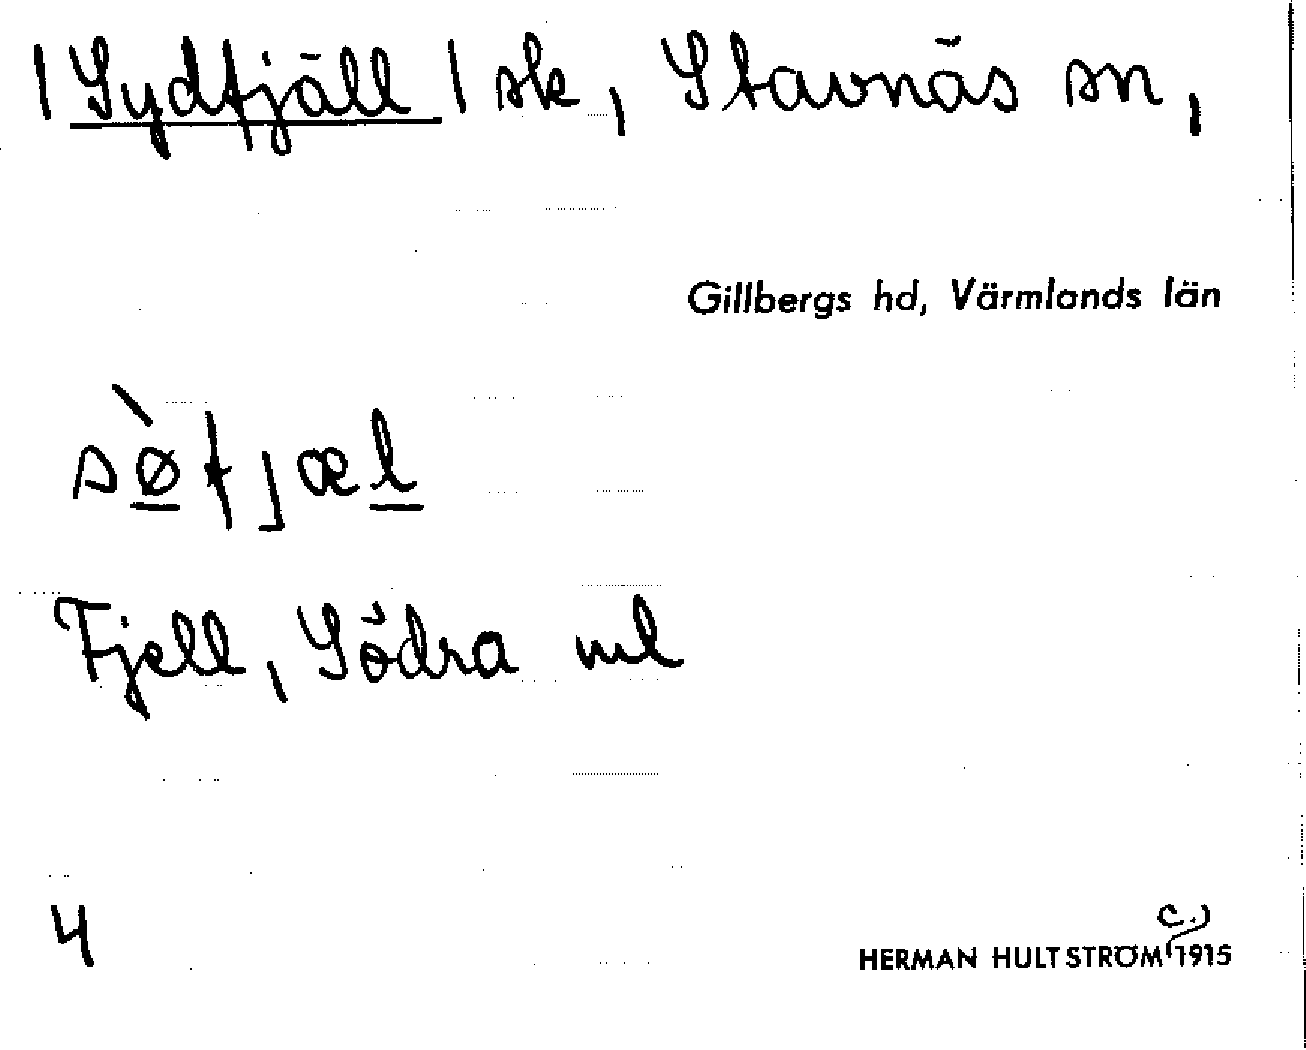 | Sydfjäll | sk, Stavnäs sn,
Gillbergs hd, Värmlands län
sø̱̀fjæḻ
Fjell, Södra ml
4
c.)
HERMAN HULTSTRÖM 1915